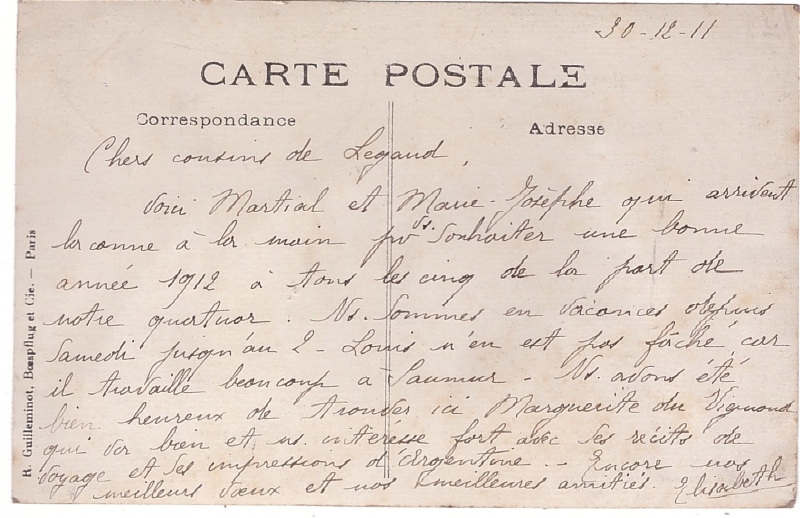 30-12-11
CARTE POSTALE
Correspondance
Adresse
Chers cousins de Legaud,
Voici Martial et Marie-Josèphe qui arrivent
la canne à la main pr vs. souhaiter une bonne
année 1912 à tous les cinq de la part de
notre quatuor. Ns. sommes en vacances depuis
Samedi jusqu'au 2 - Louis n'en est pas fâché car
il travaille beaucoup à Saumur - Ns. avons été
bien heureux de trouver ici Marguerite du Vignaud
qui va bien et ns. intéresse fort avec ses récits de
voyage et ses impressions d'Argentine. - Encore nos
meilleurs vœux et nos meilleures amitiés. Elisabeth
H. Guilleminot, Bœspflug et Cie. — Paris